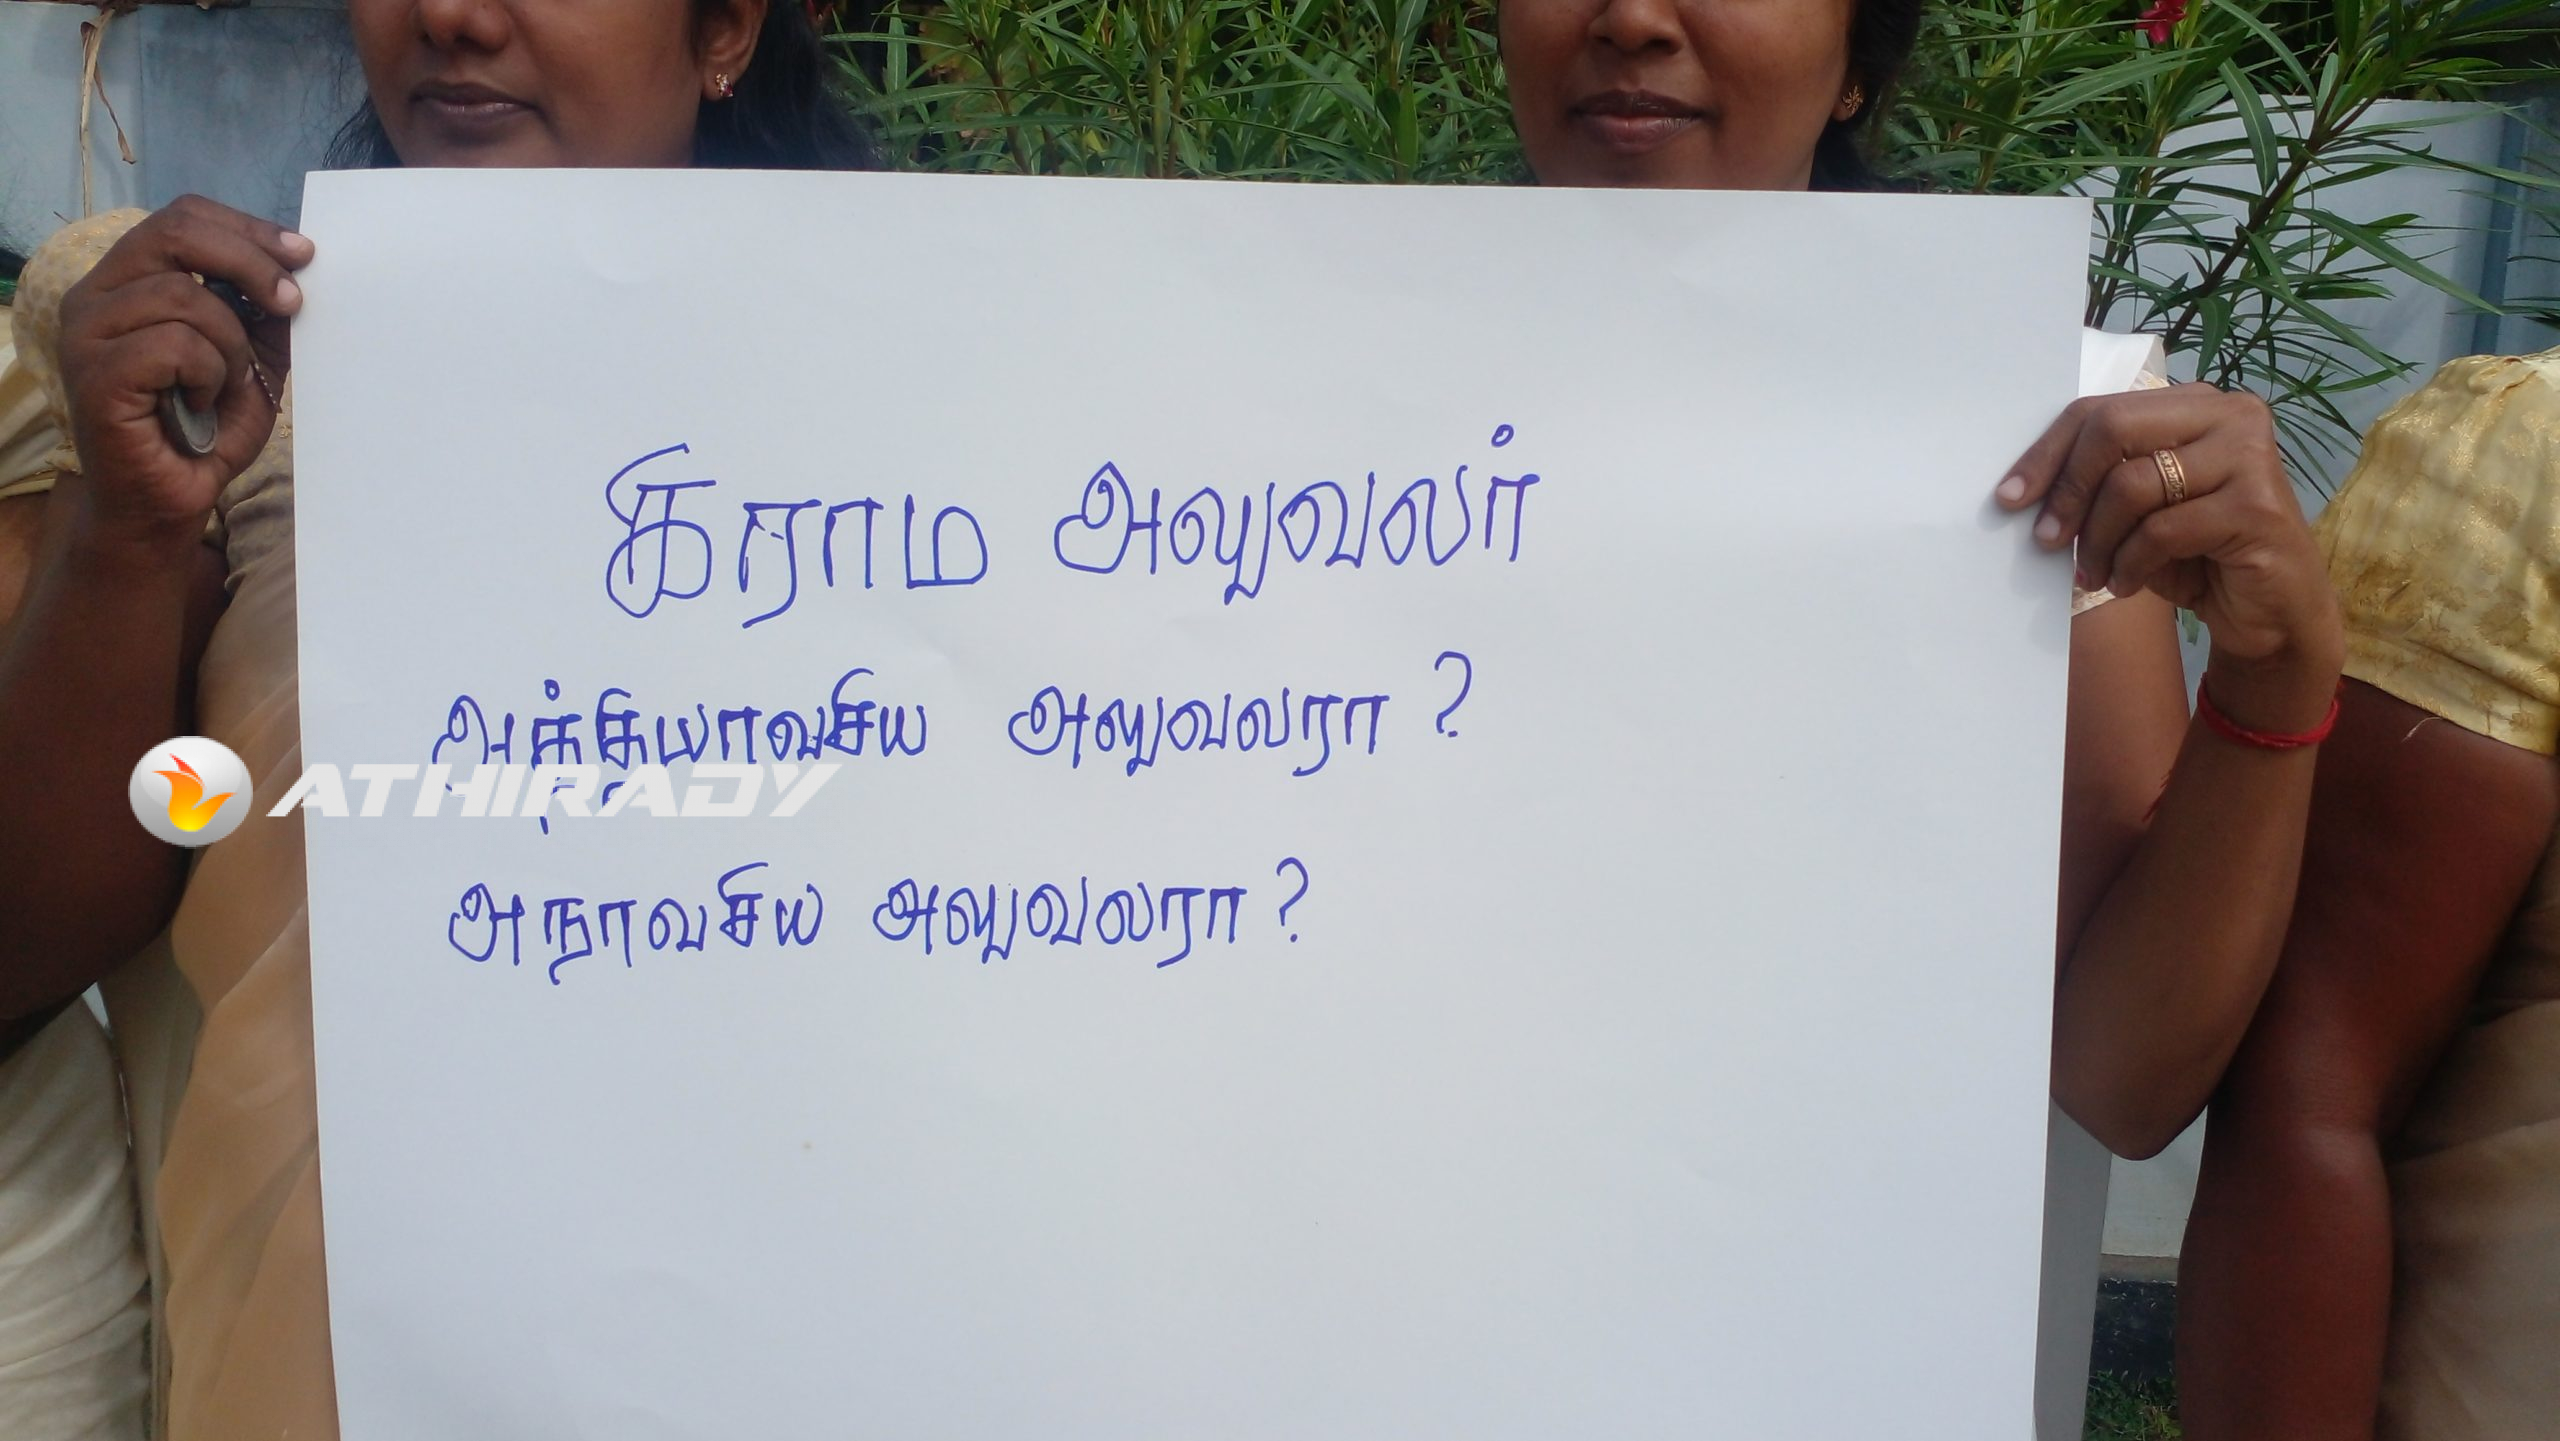 கிராம அலுவலர்
அத்தியாவசிய அலுவலரா?
ATHIRADY
அநாவசிய அலுவலரா?